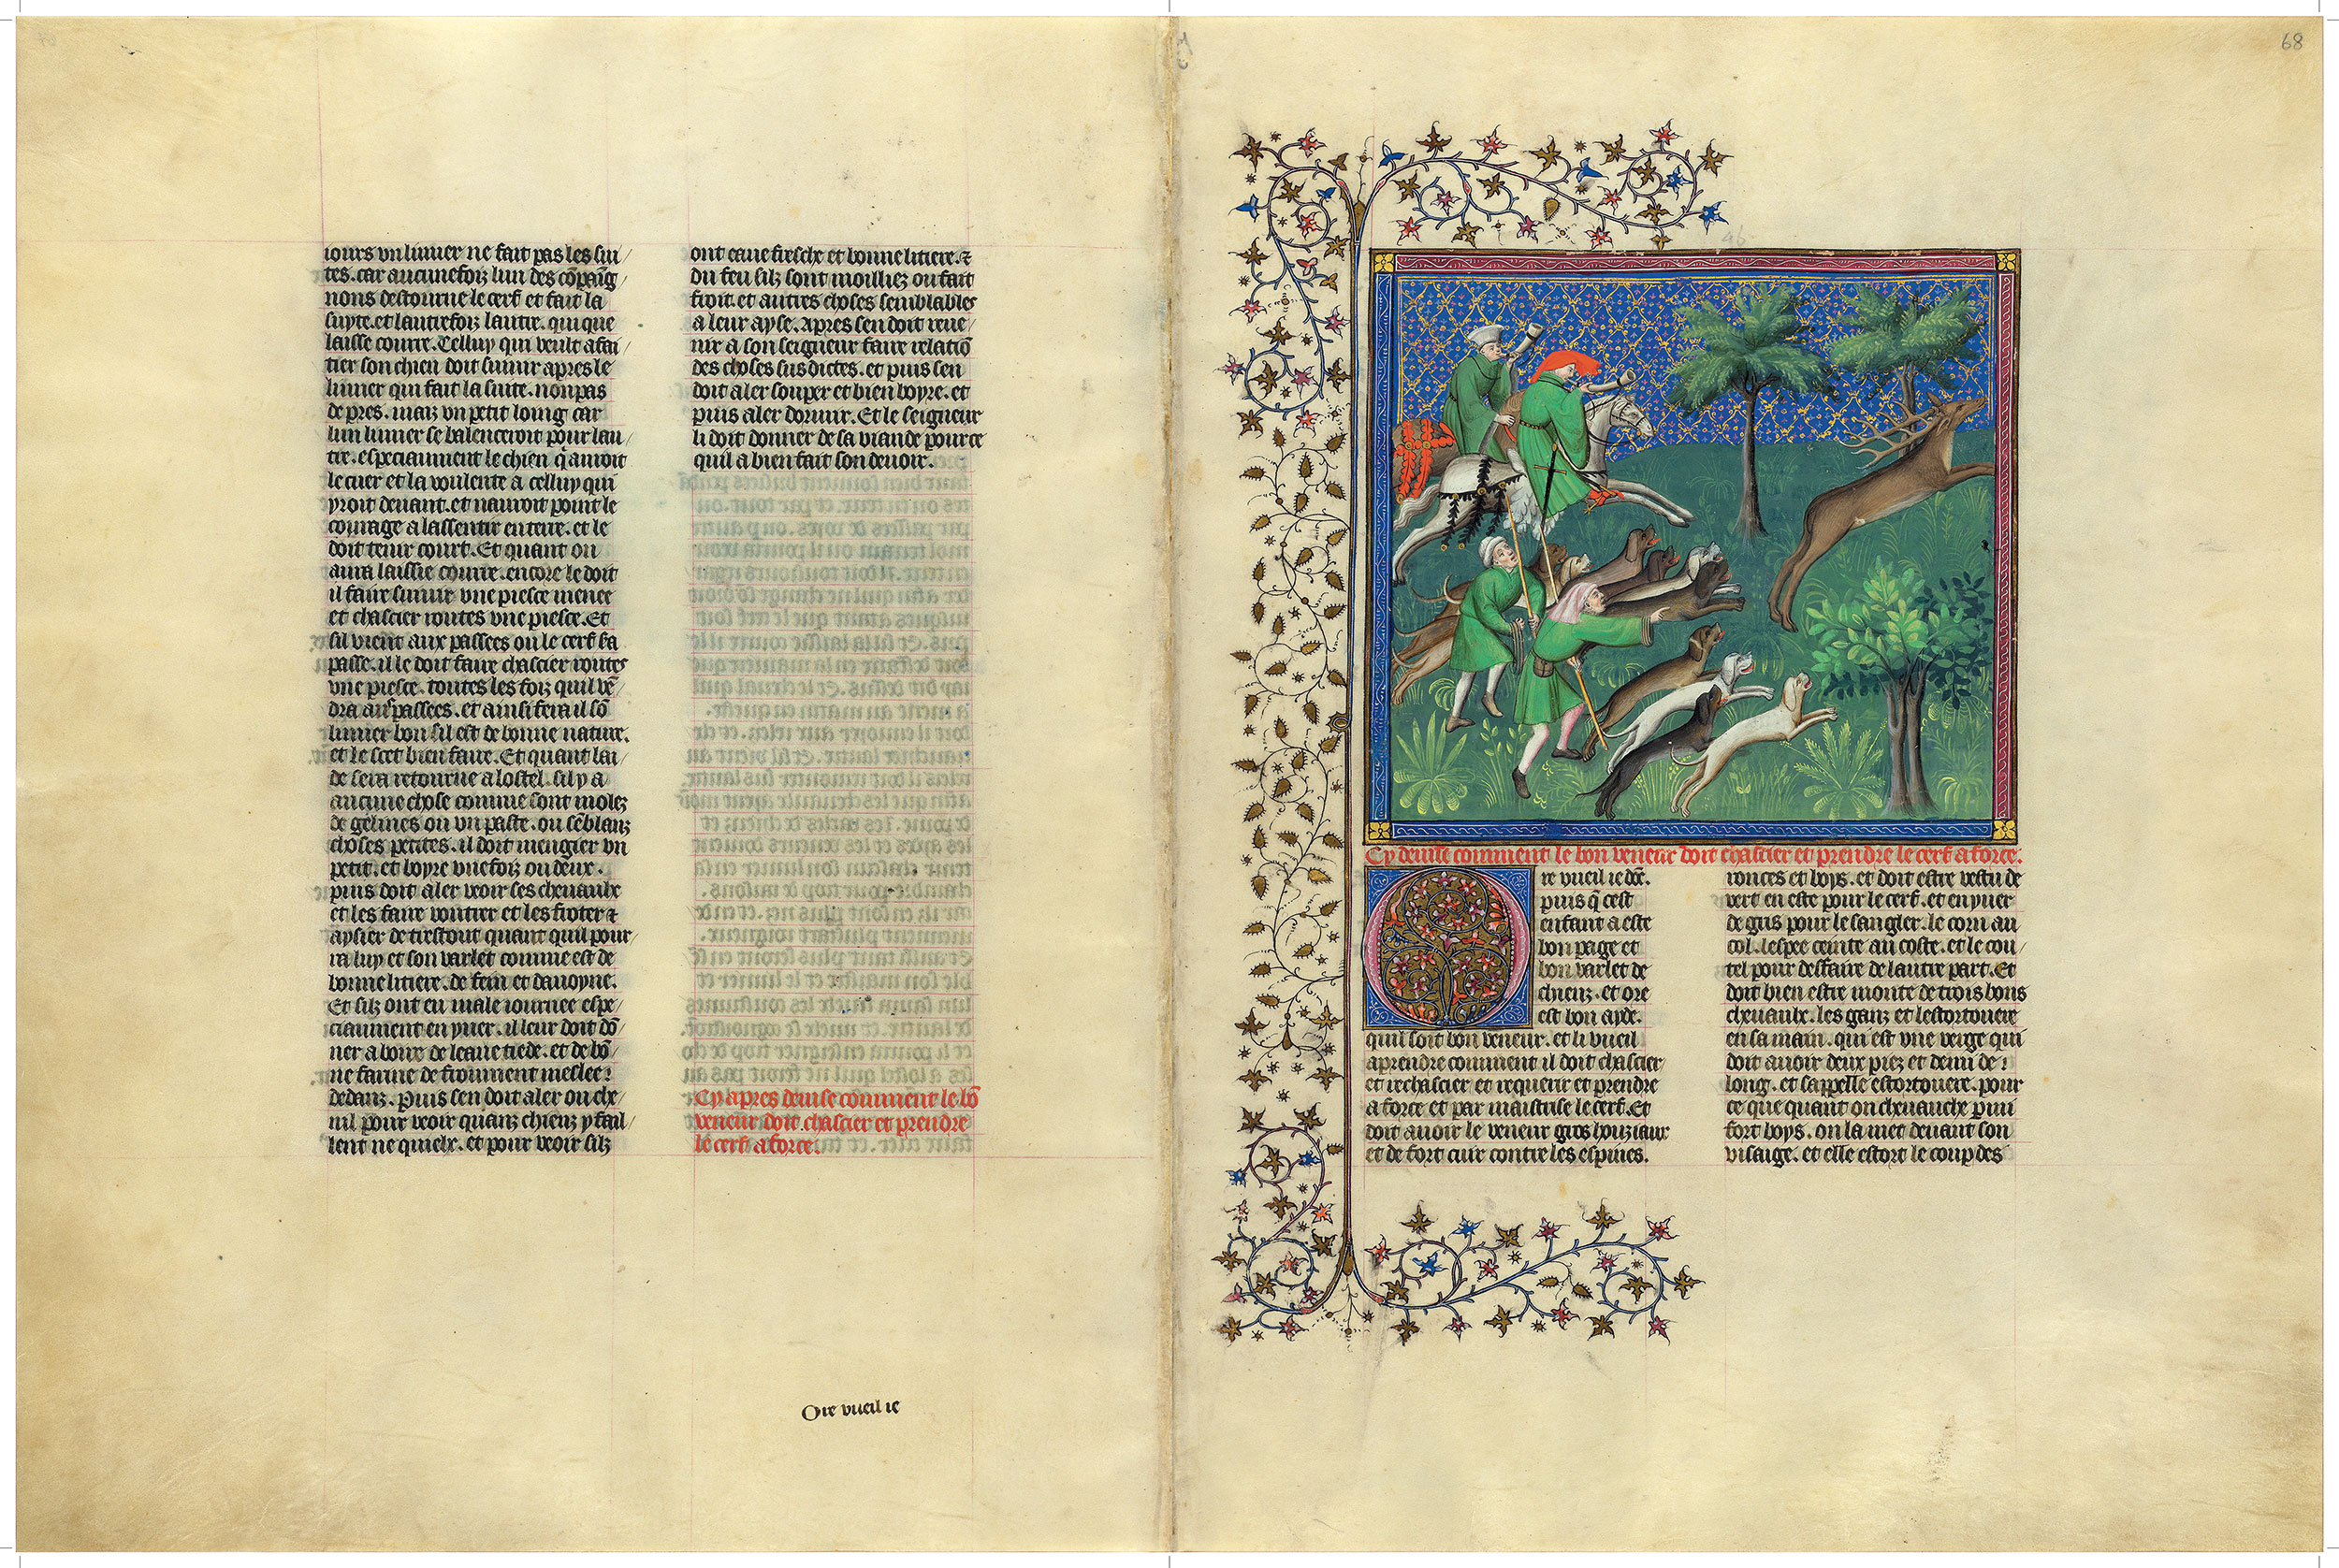 iours vn limier ne fait pas les sui/
tes. car aucunefoiz lun des cōpaig/
nons destourne le cerf et fait la
suyte. et lautrefoiz lautre. qui que
laisse courre. Celluy qui veult afai/
tier son chien doit suiuir apres le
limier qui fait la suite. non pas
de pres. maiz vn petit loing car
lun limier se balenceroit pour lau/
tre. especiaument le chien q̄ auroit
le cuer et la voulente a celluy qui
yroit deuant. et nauroit point le
courage a lassentir en terre. et le
doit tenir court. Et quant on
aura laissie courre. encore le doit
il faire suiuir vne piesce menee
et chascier routes vne piesce. Et
sil vient aux passees ou le cerf sa
passe. il le doit faire chascier routes
vne piesce. toutes les foiz quil vē/
dra au passees. et ainsi fera il sō
limier bon sil est de bonne nature.
et le scet bien faire. Et quant lai/
de sera retourne a lostel. sil y a
aucune chose comme sont molez
de gelines ou vn paste. ou sēblanz
choses petites. il doit mengier vn
petit. et boyre vnefoiz ou deux.
puis doit aler veoir ses cheuaulx
et les faire voutrer et les froter &
aysier de trestout quant quil pour/
ra luy et son varlet comme est de
bonne litiere. de fein et dauoyne.
Et silz ont eu male iournee espe/
ciaument en yuer. il leur doit dō/
ner a boire de leaue tiede. et de bō/
ne farine de froument meslee
dedanz. Puis sen doit aler ou che/
nil pour veoir quanz chienz y fail/
lent ne quielx. et pour veoir silz
ont eaue fresche et bonne litiere. &
du feu silz sont moilliez ou fait
froit. et autres choses semblables
a leur ayse. Apres sen doit reue/
nir a son seigneur faire relatiō
des choses susdictes. et puis sen
doit aler souper et bien boyre. et
puis aler dormir. Et le seigneur
li doit donner de sa viande pource
quil a bien fait son deuoir.
Cy apres deuise comment le bō
veneur doit chascier et prendre
le cerf a force.
Ore vueil ie
68
Cy deuise comment le bon veneur doit chascier et prendre le cerf a force.
Ore vueil ie dire.
puis q̄ cest
enfant a este
bon page et
bon varlet de
chienz. et ore
est bon ayde.
quil soit bon veneur. et li vueil
aprendre comment il doit chascier
et rechascier et requerir et prendre
a force et par maistrise le cerf. Et
doit auoir le veneur gros houziaux
et de fort cuir contre les espines.
ronces et boys. et doit estre vestu de
vert en este pour le cerf. et en yuer
de gris pour le sangler. le corn au
col. lespee ceinte au coste. et le cou/
tel pour desfaire de lautre part. Et
doit bien estre monte de trois bons
cheuaulx. les ganz et lestortouere
en sa main. qui est vne verge qui
doit auoir deux piez et demi de
long. et sappelle estortouere. pour
ce que quant on cheuauche parmi
fort boys. on la met deuant son
visaige. et elle estort le coup des